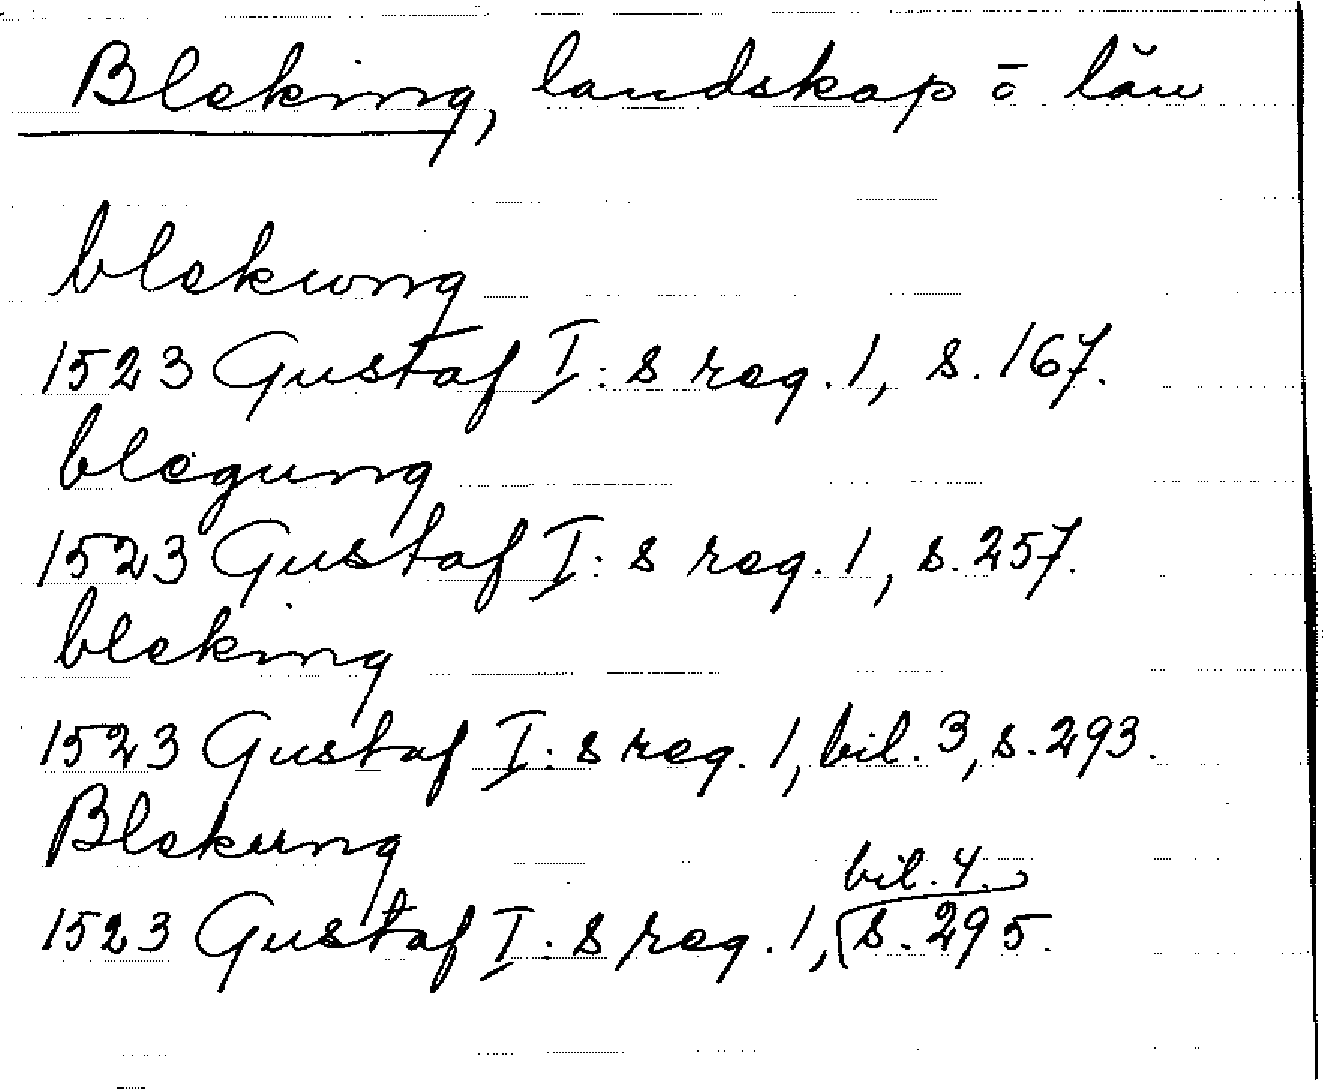 Bleking, landskap o län
blekwng
1523 Gustaf I:s reg. 1, s. 167.
blegung
1523 Gustaf I:s reg. 1, s. 257.
bleking
1523 Gustaf I:s reg. 1, bil. 3, s. 293.
Blekung
1523 Gustaf I:s reg. 1, bil. 4. s. 295.